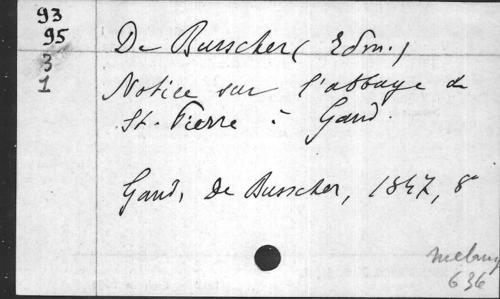 93
95
3
1
De Busscher (Edm.)
Notice sur l'abbaye de
St. Pierre à Gand.
Gand, De Busscher, 1847, 8°
636